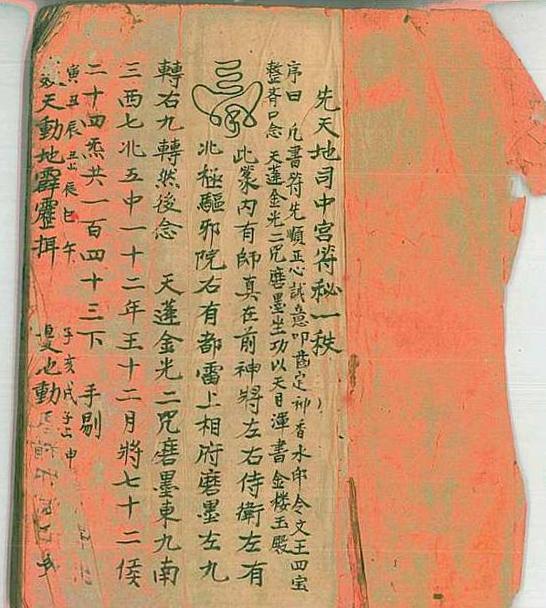 先天地司中宮符秘一秩
序曰 凡書符先順正心誠意叩齒定神香水印令文王四宝
整齊口念 天蓬金光二咒磨墨坐功以天目渾書金楼玉殿
此篆内有師真在前神将左右侍衛左有
北極驅邪院右有都雷上相府磨墨左九
轉右九轉然後念 天蓬金光二咒磨墨東九南
三西七北五中一十二年王十二月將七十二候
二十四炁共一百四十三下 手剔
寅丑辰丑出辰巳午 子亥戌子出申
天動地霹靂揖 也動